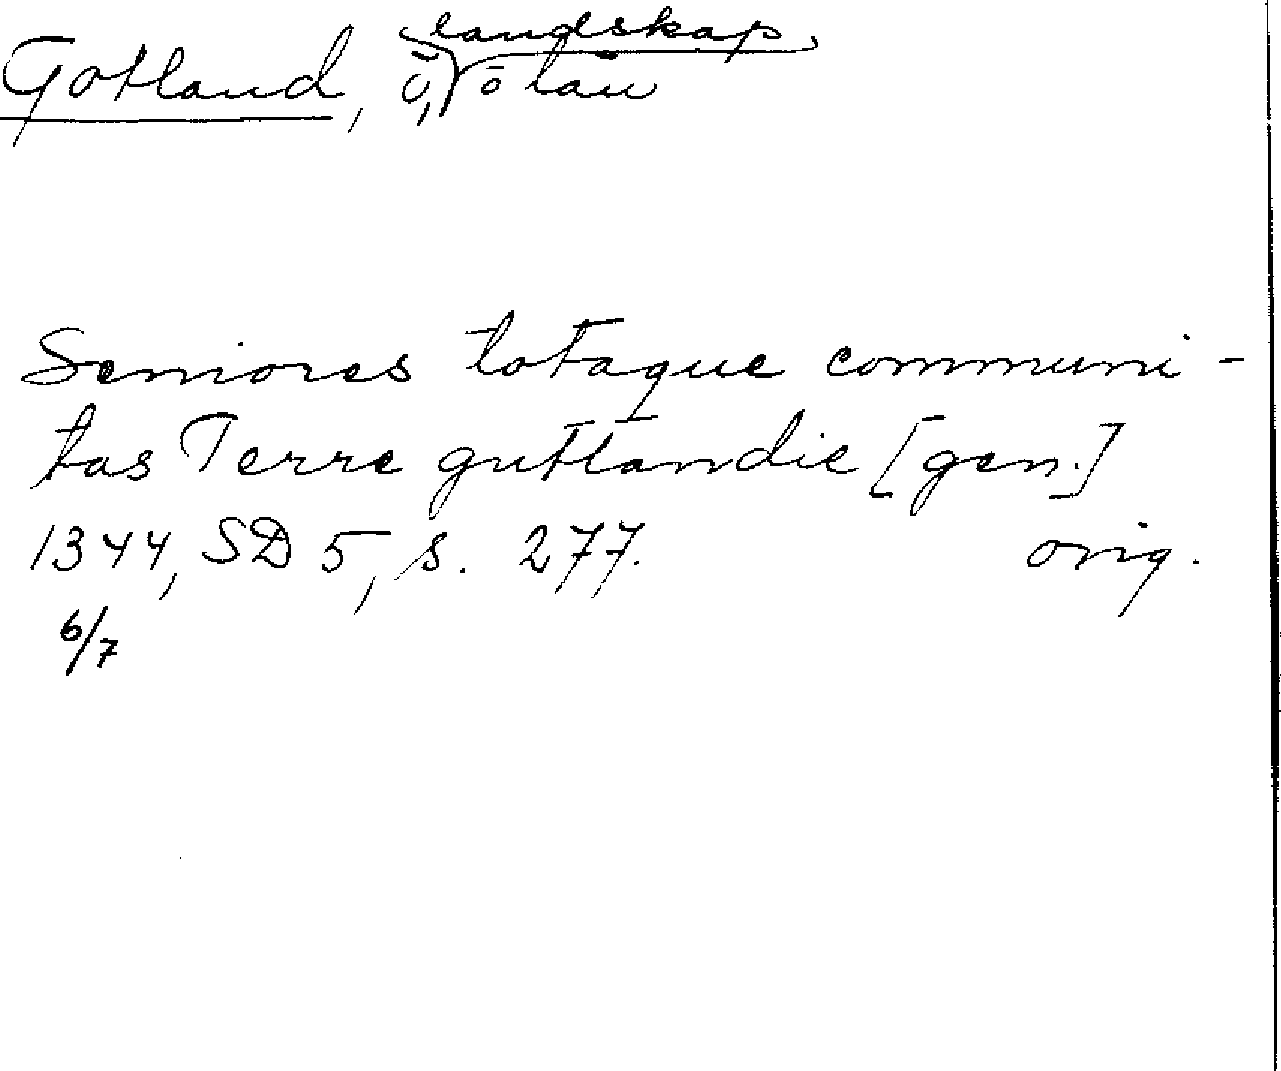 Gotland, ö, landskap, o län
Seniores totaque communi-
tas Terre gutlandie [gen.]
1344, SD 5, s. 277. orig.
6/7